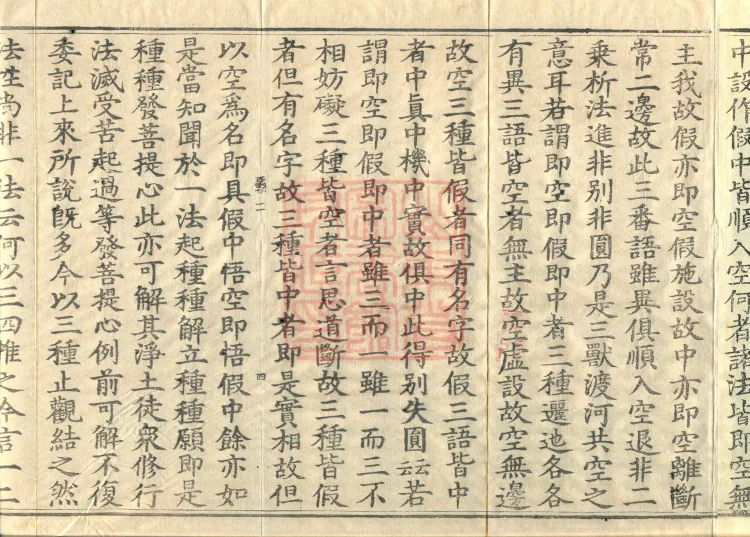 中設作假中皆順入空何者諸法皆即空無
主我故假亦即空假施設故中亦即空離斷
常二邊故此三番語雖異俱順入空退非二
乘析法進非別非圓乃是三獸渡河共空之
意耳若謂即空即假即中者三種邐迆各各
有異三語皆空者無主故空虛設故空無邊
故空三種皆假者同有名字故假三語皆中
者中真中機中實故俱中此得別失圓云云若
謂即空即假即中者雖三而一雖一而三不
相妨礙三種皆空者言思道斷故三種皆假
者但有名字故三種皆中者即是實相故但
二
四
以空爲名即具假中悟空即悟假中餘亦如
是當知聞於一法起種種解立種種願即是
種種發菩提心此亦可解其淨土徒衆修行
法滅受苦起過等發菩提心例前可解不復
委記上來所說旣多今以三種止觀結之然
法性尚非一法云何以三四推之今言一二